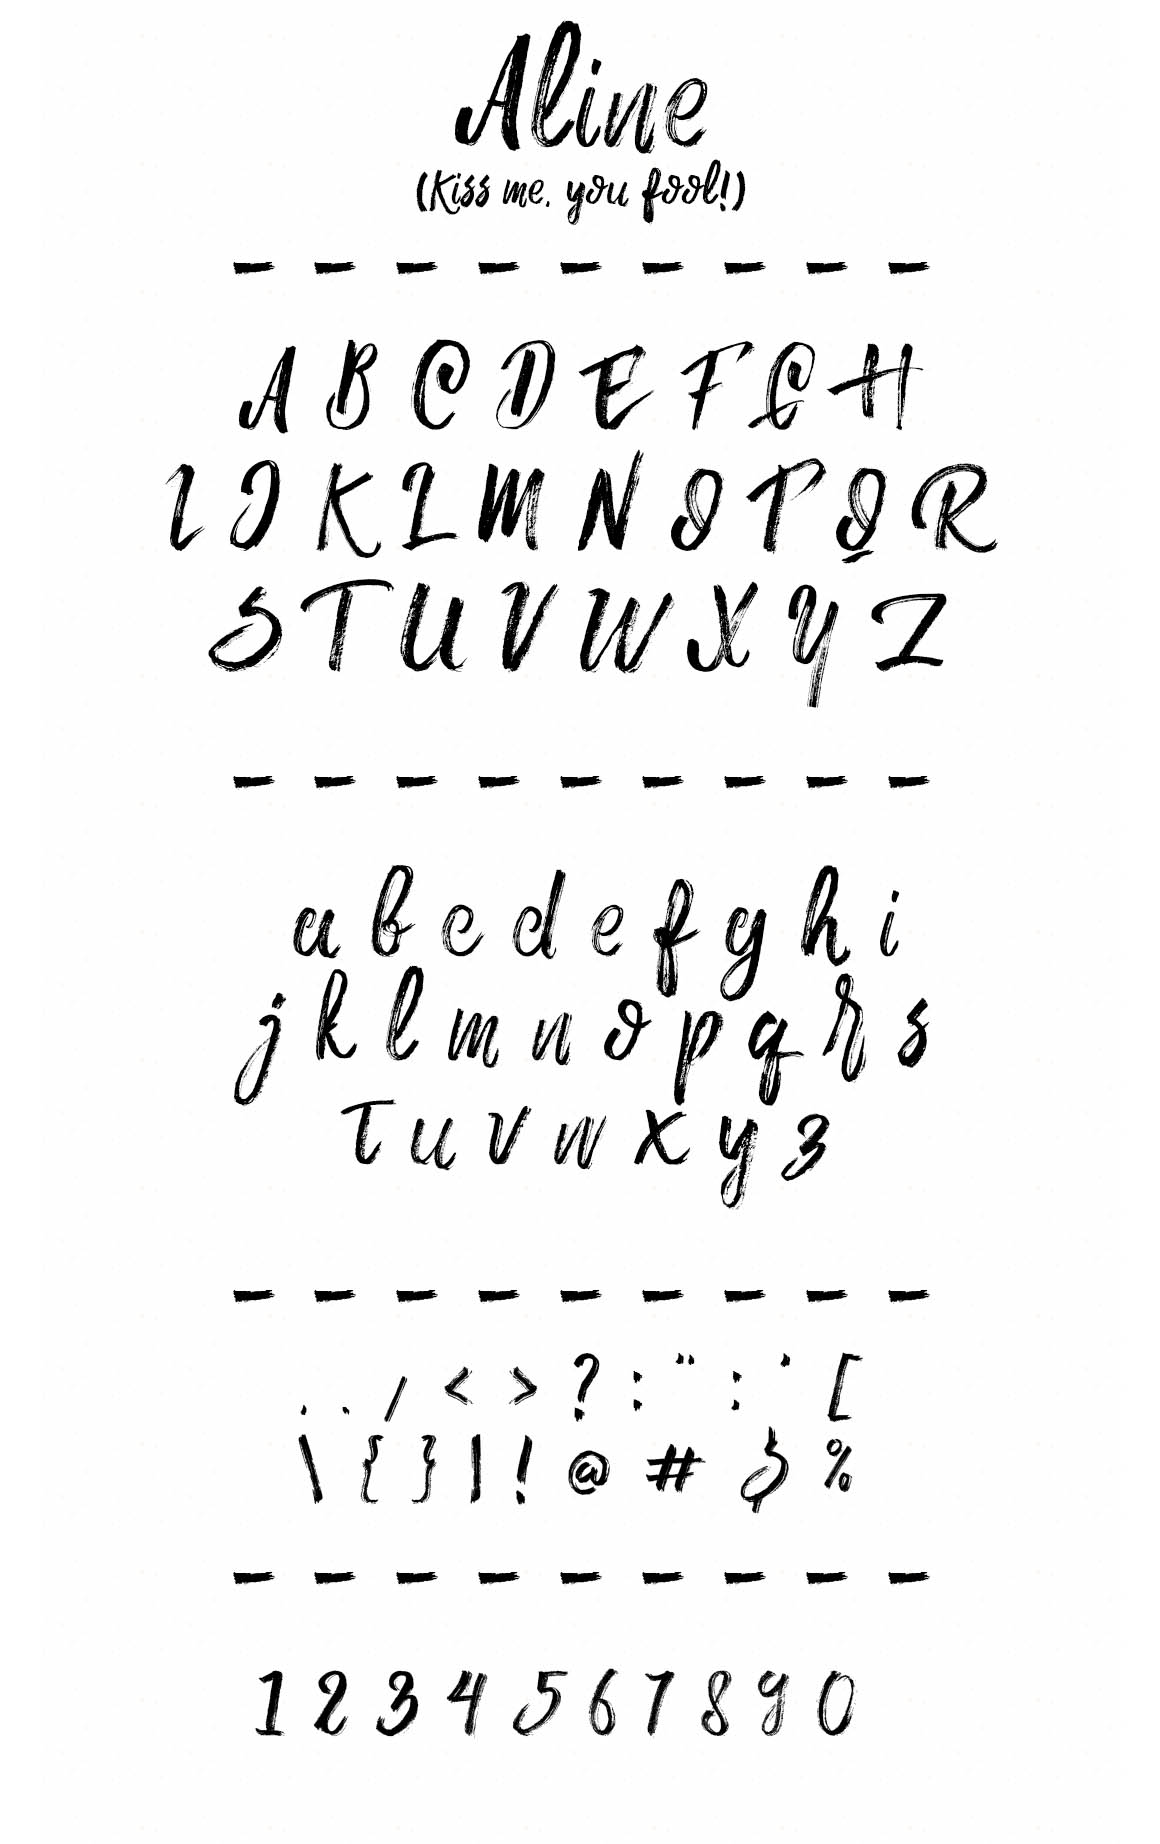 Aline
(Kiss me, you fool!)
- - - - - - - - -
A B C D E F G H
I J K L M N O P Q R
S T U V W X Y Z
- - - - - - - - -
a b c d e f g h i
j k l m n o p q r s
t u v w x y z
- - - - - - - - -
, . / < > ? : " : ' [
\ { } | ! @ # $ %
- - - - - - - - -
1 2 3 4 5 6 7 8 9 0